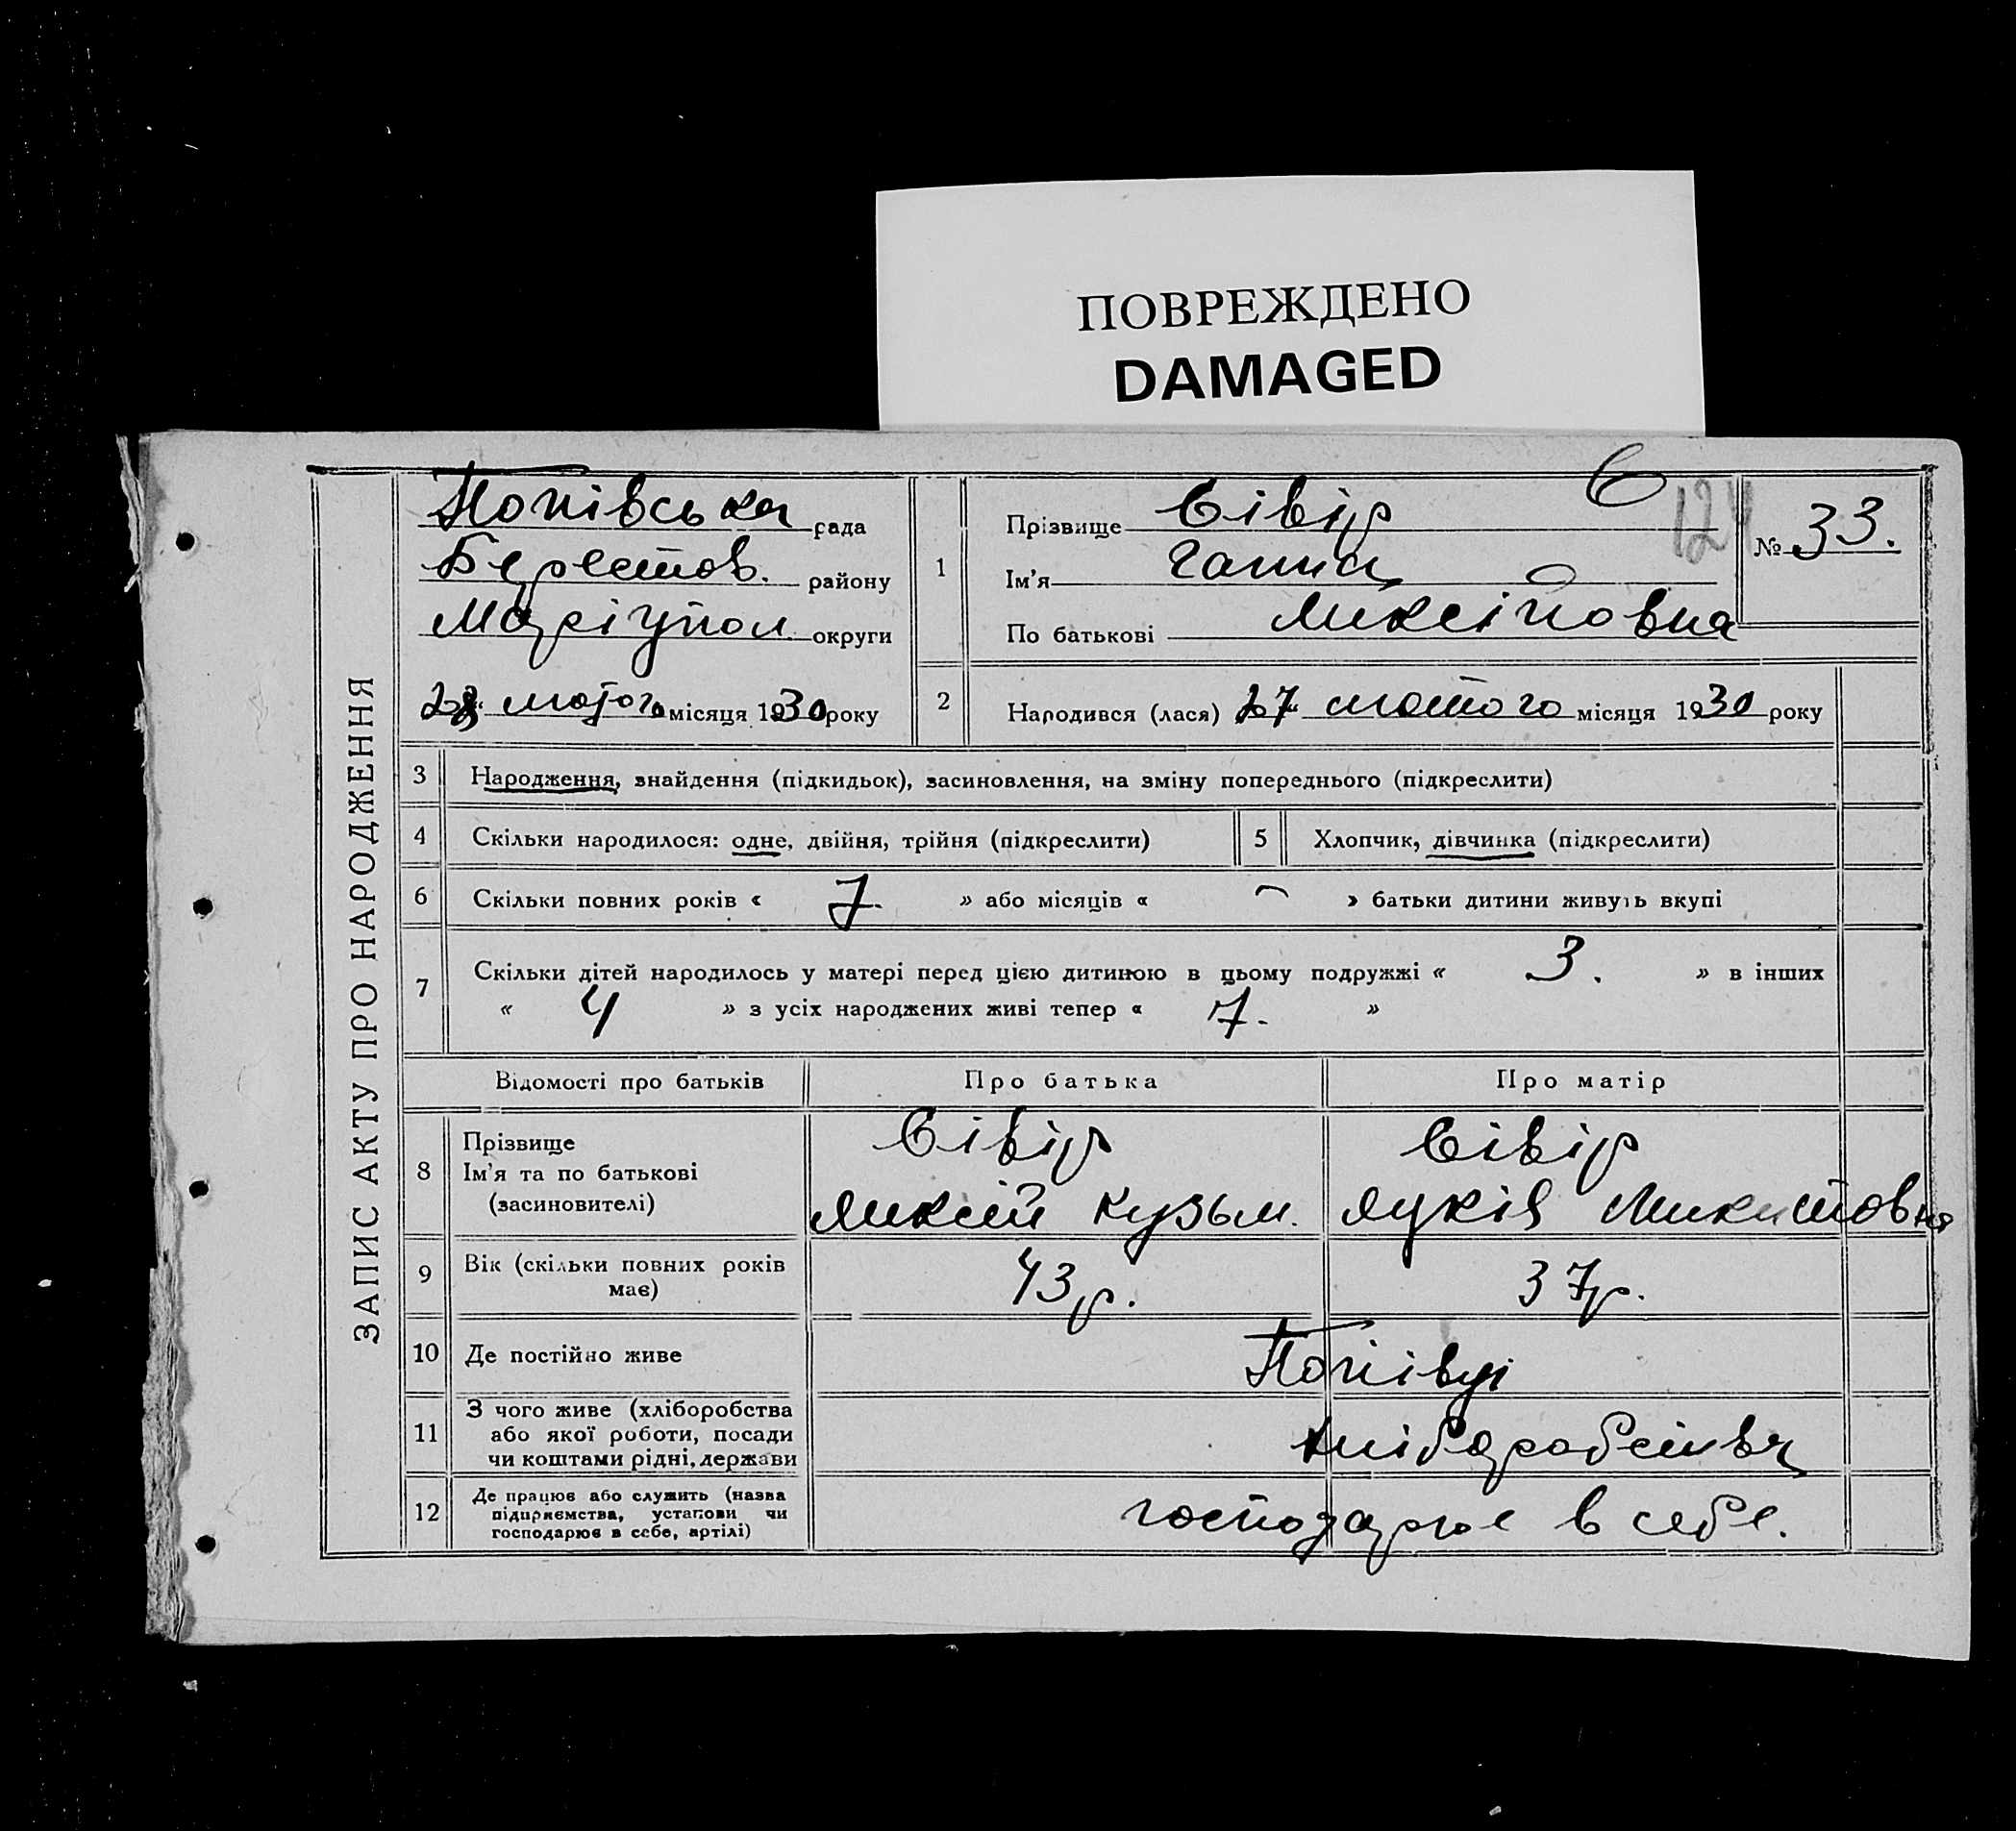 ПОВРЕЖДЕНО
DAMAGED
ЗАПИС АКТУ ПРО НАРОДЖЕННЯ
Попівська рада
Берестов. району
Маріупол округи
28 лютого місяця 1930 року
С
124
№ 33.
1
Прізвище Сівір
Ім'я Ганна
По батькові Олексіївна
2 Народився (лася) 27 лютого місяця 1930 року
3 Народження, знайдення (підкидьок), засиновлення, на зміну попереднього (підкреслити)
4 Скільки народилося: одне, двійня, трійня (підкреслити) 5 Хлопчик, дівчинка (підкреслити)
6 Скільки повних років « 7 » або місяців « — » батьки дитини живуть вкупі
7 Скільки дітей народилось у матері перед цією дитиною в цьому подружжі « 3. » в інших
« 4 » з усіх народжених живі тепер « 7. »
Відомості про батьків Про батька Про матір
8 Прізвище Сівір Сівір
Ім'я та по батькові
(засиновителі) Кузьм. Микитовна
9 Вік (скільки повних років
має) 43 р. 37 р.
10 Де постійно живе Попівці
11 З чого живе (хліборобства
або якої роботи, посади
чи коштами рідні, держави
12 Де працює або служить (назва
підприємства, установи чи
господарює в себе, артілі) господарює в себе.